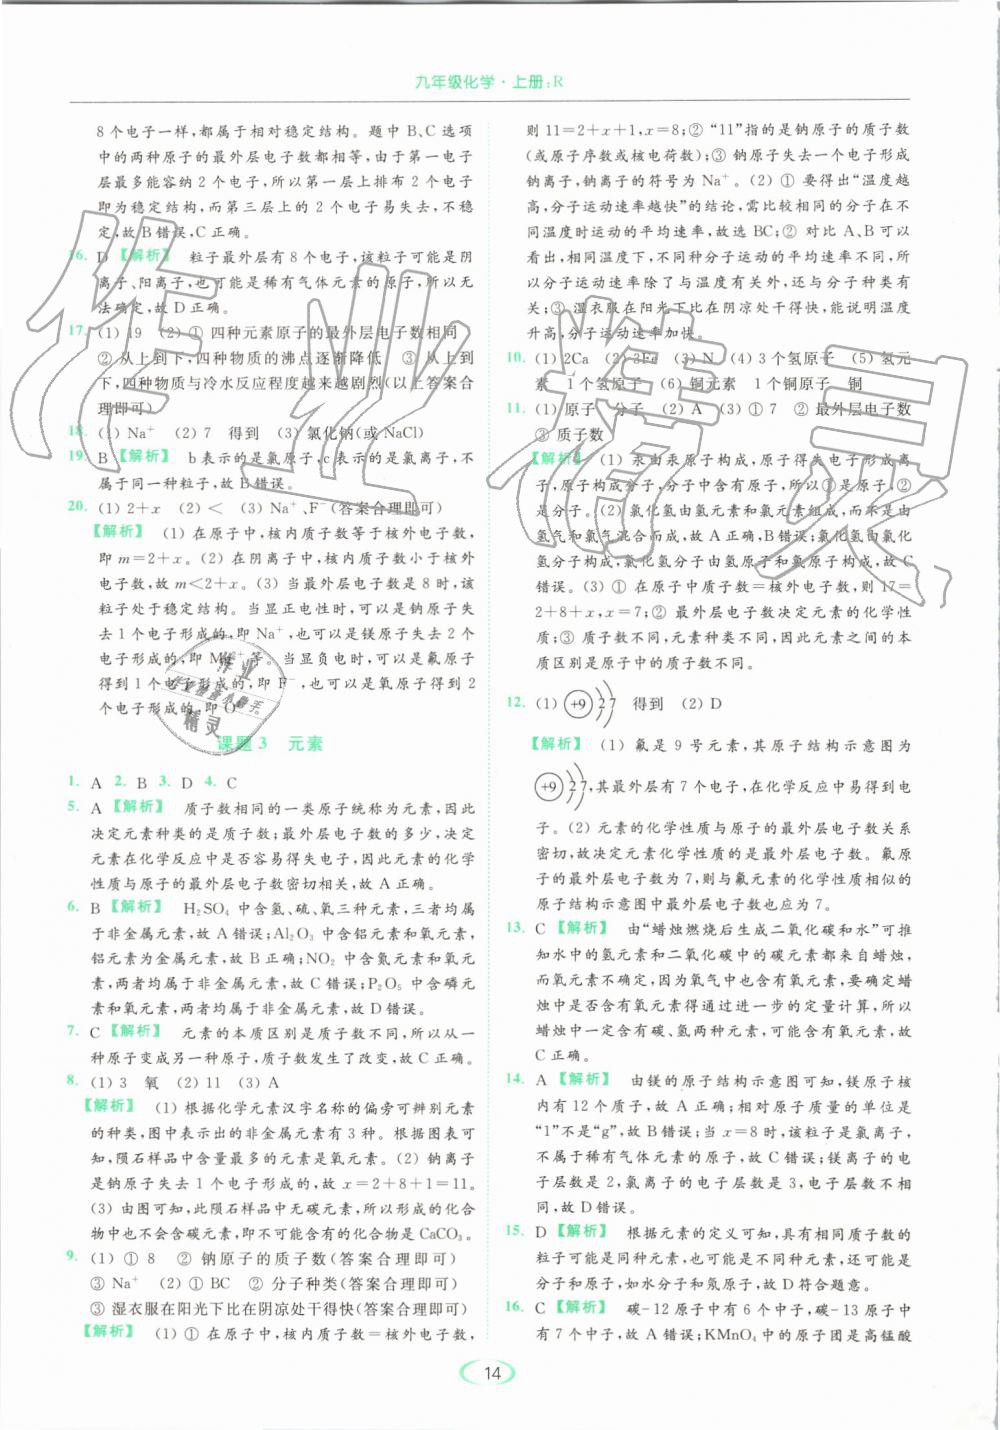 九年级化学·上册:R
8个电子一样,都属于相对稳定结构。题中B、C选项
中的两种原子的最外层电子数都相等,由于第一电子
层最多能容纳2个电子,所以第一层上排布2个电子
即为稳定结构,而第三层上的2个电子易失去,不稳
定,故B错误,C正确。
16. D【解析】 粒子最外层有8个电子,该粒子可能是阴
离子、阳离子,也可能是稀有气体元素的原子,所以无
法确定,故D正确。
17. (1) 19 (2) ① 四种元素原子的最外层电子数相同
② 从上到下,四种物质的沸点逐渐降低 ③ 从上到
下,四种物质与冷水反应程度越来越剧烈(以上答案合
理即可)
18. (1) Na⁺ (2) 7 得到 (3) 氯化钠(或NaCl)
19. B【解析】 b表示的是氯原子,c表示的是氯离子,不
属于同一种粒子,故B错误。
20. (1) 2+x (2) < (3) Na⁺、F⁻(答案合理即可)
【解析】 (1) 在原子中,核内质子数等于核外电子数,
即m=2+x。(2) 在阴离子中,核内质子数小于核外
电子数,故m<2+x。(3) 当最外层电子数是8时,该
粒子处于稳定结构。当显正电性时,可以是钠原子失
去1个电子形成的,即Na⁺,也可以是镁原子失去2个
电子形成的,即Mg²⁺等。当显负电时,可以是氟原子
得到1个电子形成的,即F⁻,也可以是氧原子得到2
个电子形成的,即O
课题3 元素
1. A 2. B 3. D 4. C
5. A【解析】 质子数相同的一类原子统称为元素,因此
决定元素种类的是质子数;最外层电子数的多少,决定
元素在化学反应中是否容易得失电子,因此元素的化学
性质与原子的最外层电子数密切相关,故A正确。
6. B【解析】 H₂SO₄中含氢、硫、氧三种元素,三者均属
于非金属元素,故A错误;Al₂O₃中含铝元素和氧元素,
铝元素为金属元素,故B正确;NO₂中含氮元素和氧元
素,两者均属于非金属元素,故C错误;P₂O₅中含磷元
素和氧元素,两者均属于非金属元素,故D错误。
7. C【解析】 元素的本质区别是质子数不同,所以从一
种原子变成另一种原子,质子数发生了改变,故C正确。
8. (1) 3 氧 (2) 11 (3) A
【解析】 (1) 根据化学元素汉字名称的偏旁可辨别元素
的种类,图中表示出的非金属元素有3种。根据图表可
知,陨石样品中含量最多的元素是氧元素。(2) 钠离子
是钠原子失去1个电子形成的,故x=2+8+1=11。
(3) 由图可知,此陨石样品中无碳元素,所以形成的化合
物中也不会含碳元素,即不可能含有的化合物是CaCO₃。
9. (1) ① 8 ② 钠原子的质子数(答案合理即可)
③ Na⁺ (2) ① BC ② 分子种类(答案合理即可)
③ 湿衣服在阳光下比在阴凉处干得快(答案合理即可)
【解析】 (1) ① 在原子中,核内质子数=核外电子数,
则11=2+x+1,x=8;② “11”指的是钠原子的质子数
(或原子序数或核电荷数);③ 钠原子失去一个电子形成
钠离子,钠离子的符号为Na⁺。(2) ① 要得出“温度越
高,分子运动速率越快”的结论,需比较相同的分子在不
同温度时运动的平均速率,故选BC;② 对比A、B可以
看出,相同温度下,不同种分子运动的平均速率不同,所
以分子运动速率除了与温度有关以外,还与分子种类有
关;③ 湿衣服在阳光下比在阴凉处干得快,能说明温度
升高,分子运动速率加快。
10. (1) 2Ca (2) 3Fe (3) N (4) 3个氢原子 (5) 氢元
素 1个氢原子 (6) 铜元素 1个铜原子 铜
11. (1) 原子 分子 (2) A (3) ① 7 ② 最外层电子数
③ 质子数
【解析】 (1) 汞由汞原子构成,汞原子得失电子形成离
子,原子构成分子,分子中含有原子,所以①是原子,②
是分子。(2) 氯化氢由氢元素和氯元素组成,而不是由
氢气和氯气混合而成,故A正确,B错误;氯化氢由氯化
氢分子构成,氯化氢分子由氢原子和氯原子构成,故C、D
错误。(3) ① 在原子中质子数=核外电子数,则17=
2+8+x,x=7;② 最外层电子数决定元素的化学性
质;③ 质子数不同,元素种类不同,因此元素之间的本
质区别是原子中的质子数不同。
12. (1) +9 2 7 得到 (2) D
【解析】 (1) 氟是9号元素,其原子结构示意图为
+9 2 7,其最外层有7个电子,在化学反应中易得到电
子。(2) 元素的化学性质与原子的最外层电子数关系
密切,故决定元素化学性质的是最外层电子数。氟原
子的最外层电子数为7,则与氟元素的化学性质相似的
原子结构示意图中最外层电子数也应为7。
13. C【解析】 由“蜡烛燃烧后生成二氧化碳和水”可推
知水中的氢元素和二氧化碳中的碳元素都来自蜡烛,
而氧元素不确定,因为氧气中也含有氧元素,要确定蜡
烛中是否含有氧元素得通过进一步的定量计算,所以
蜡烛中一定含有碳、氢两种元素,可能含有氧元素,故
C正确。
14. A【解析】 由镁的原子结构示意图可知,镁原子核
内有12个质子,故A正确;相对原子质量的单位是
“1”不是“g”,故B错误;当x=8时,该粒子是氯离子,
不属于稀有气体元素的原子,故C错误;镁离子的电
子层数是2,氯离子的电子层数是3,电子层数不相
同,故D错误。
15. D【解析】 根据元素的定义可知,具有相同质子数的
粒子可能是同种元素,也可能是不同种元素,还可能是
分子和原子,如水分子和氖原子,故D符合题意。
16. C【解析】 碳-12原子中有6个中子,碳-13原子中
有7个中子,故A错误;KMnO₄中的原子团是高锰酸
14
作业精灵